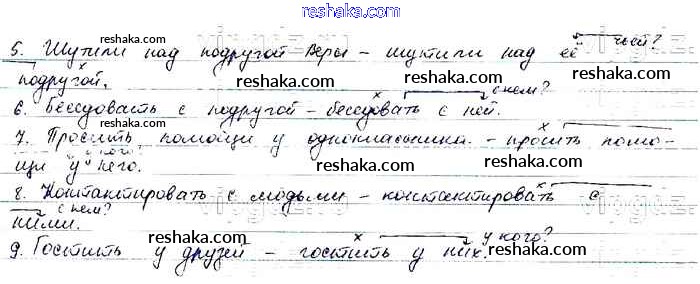 reshaka.com
5. Шутили над подругой Веры – шутили над её чьей?
подругой.
reshaka.com
reshaka.com
с кем?
6. Беседовать с подругой – беседовать с ней.
7. Просить помощи у одноклассника. – просить помо-
у кого?
щи у него.
reshaka.com
reshaka.com
8. Контактировать с людьми – контактировать с
с кем?
ними.
reshaka.com
reshaka.com
у кого?
9. Гостить у друзей – гостить у них.
reshaka.com